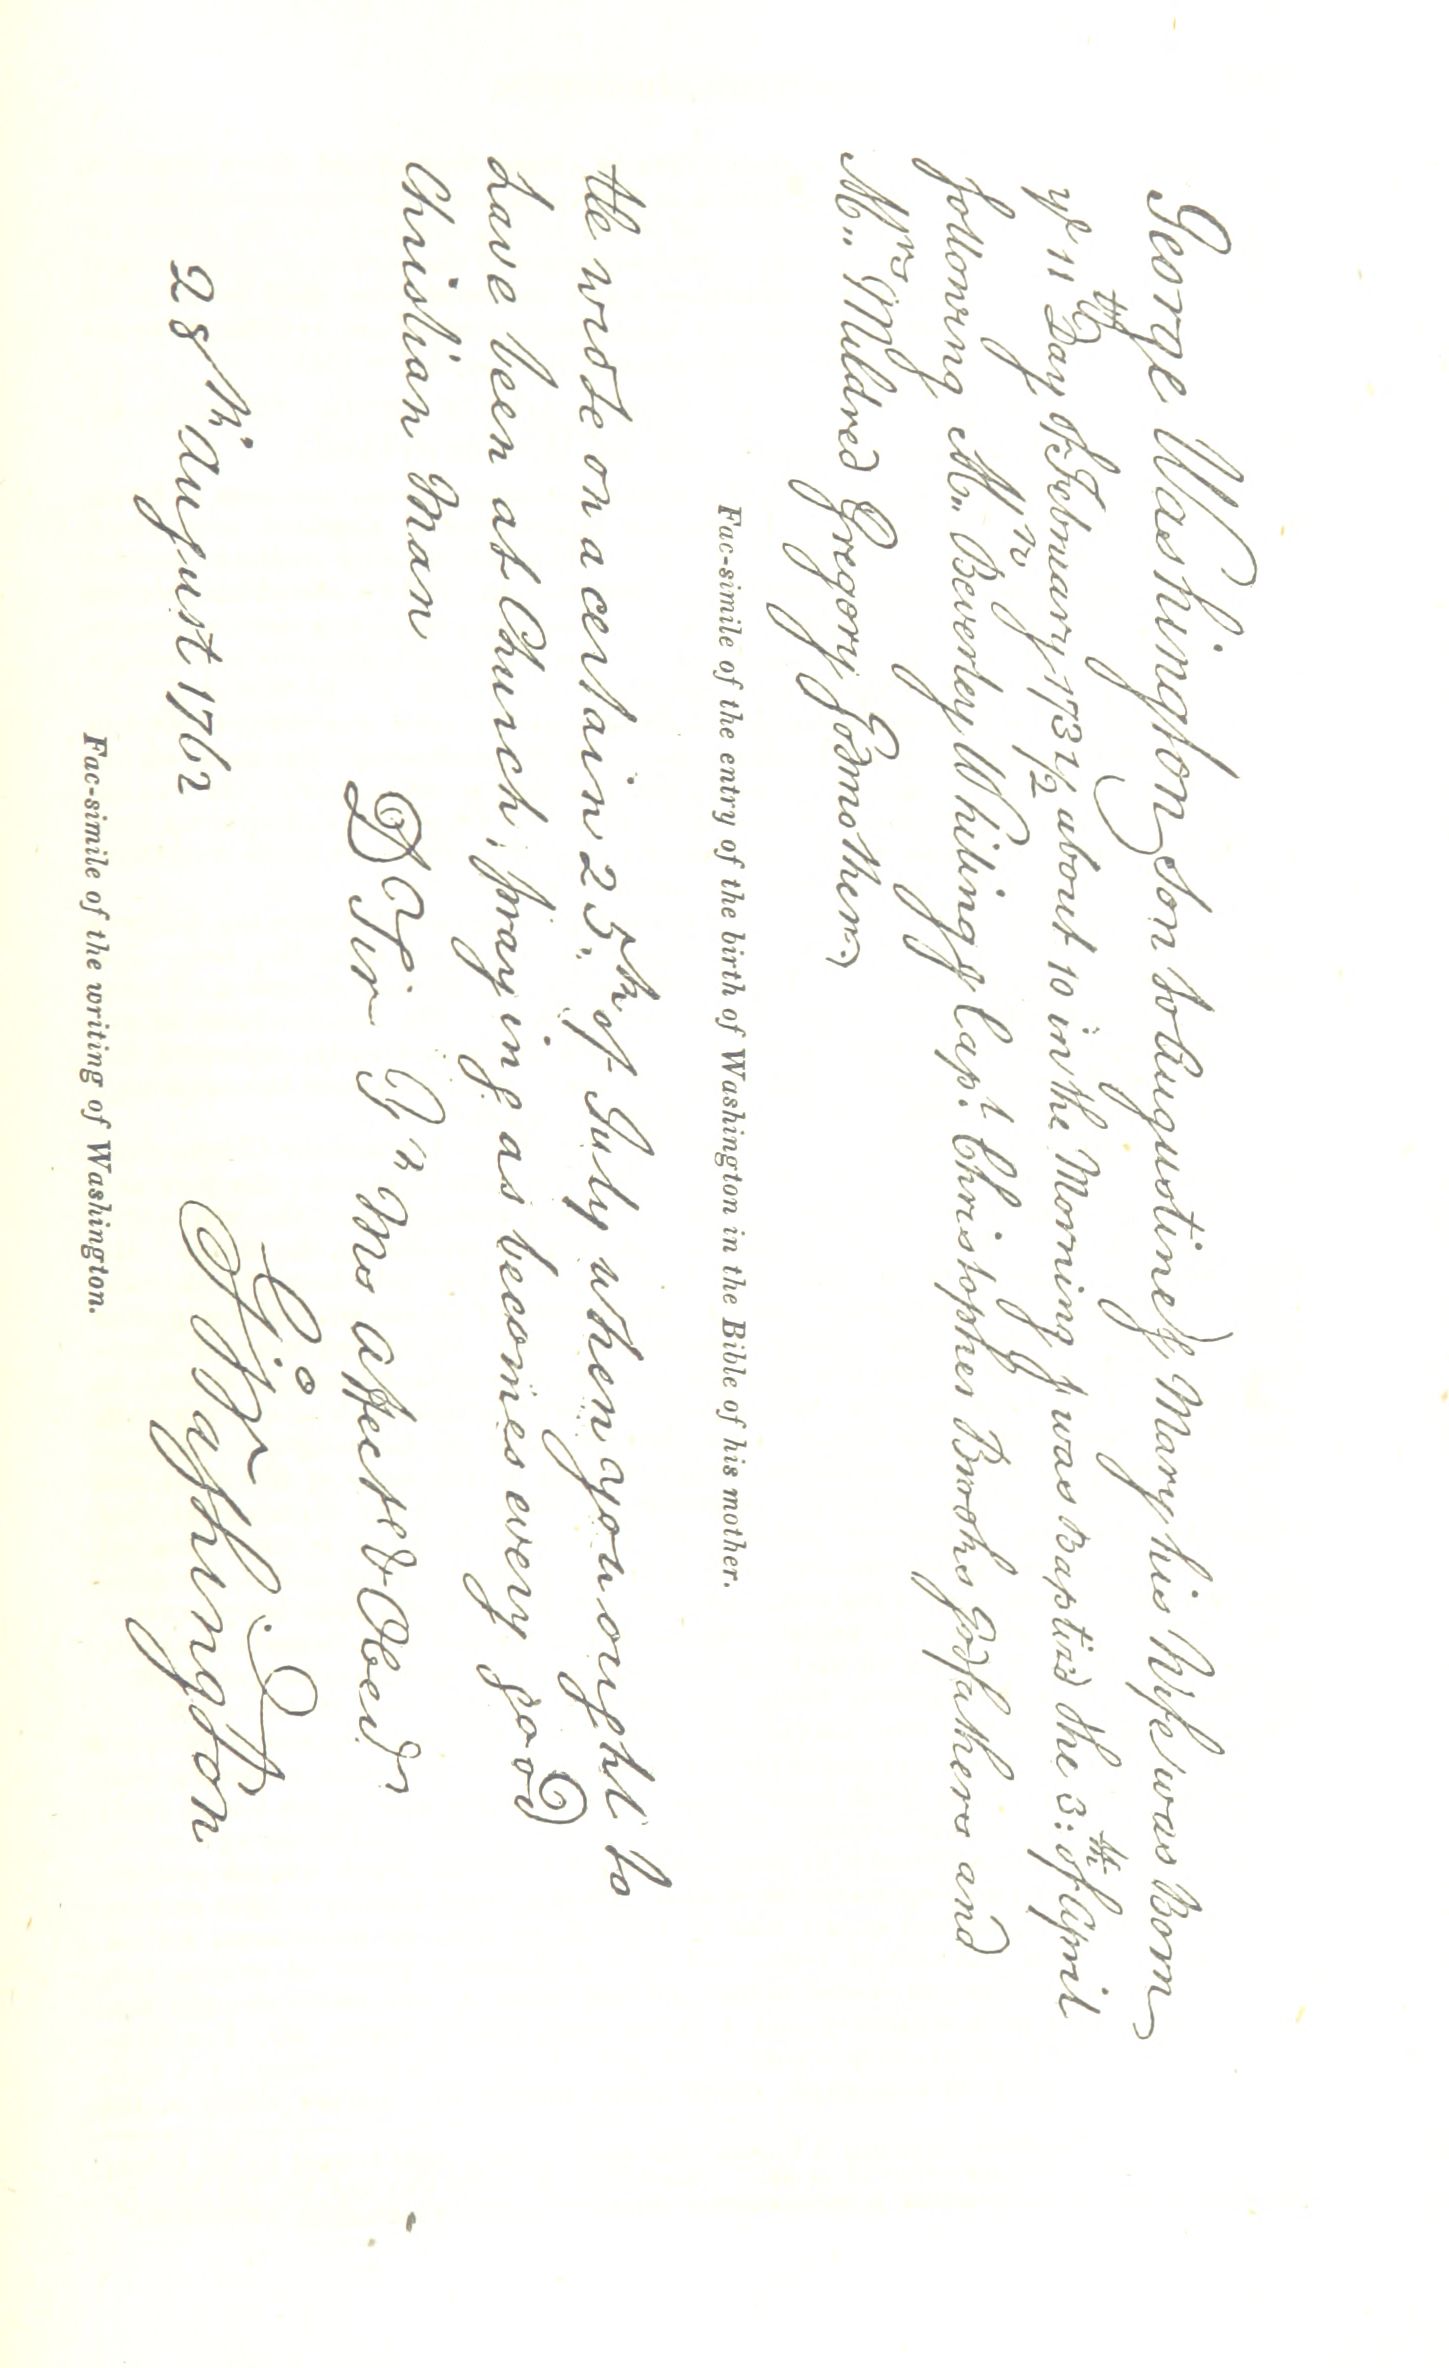 George Washington Son to Augustine & Mary his Wife was Born
ye 11th Day of February 173 1/2 about 10 in the Morning & was Baptiz'd the 3th of April
following Mr Beverley Whiting & Capt Christopher Brooks Godfathers and
Mrs Mildred Gregory Godmother
Fac-simile of the entry of the birth of Washington in the Bible of his mother.
He wrote on a certain 25th of July when you ought to
have been at Church, praying as becomes every good
Christian Man
Dr Sir Yr Mo affecte & Obedt
Go: Washington
28th August 1762
Fac-simile of the writing of Washington.